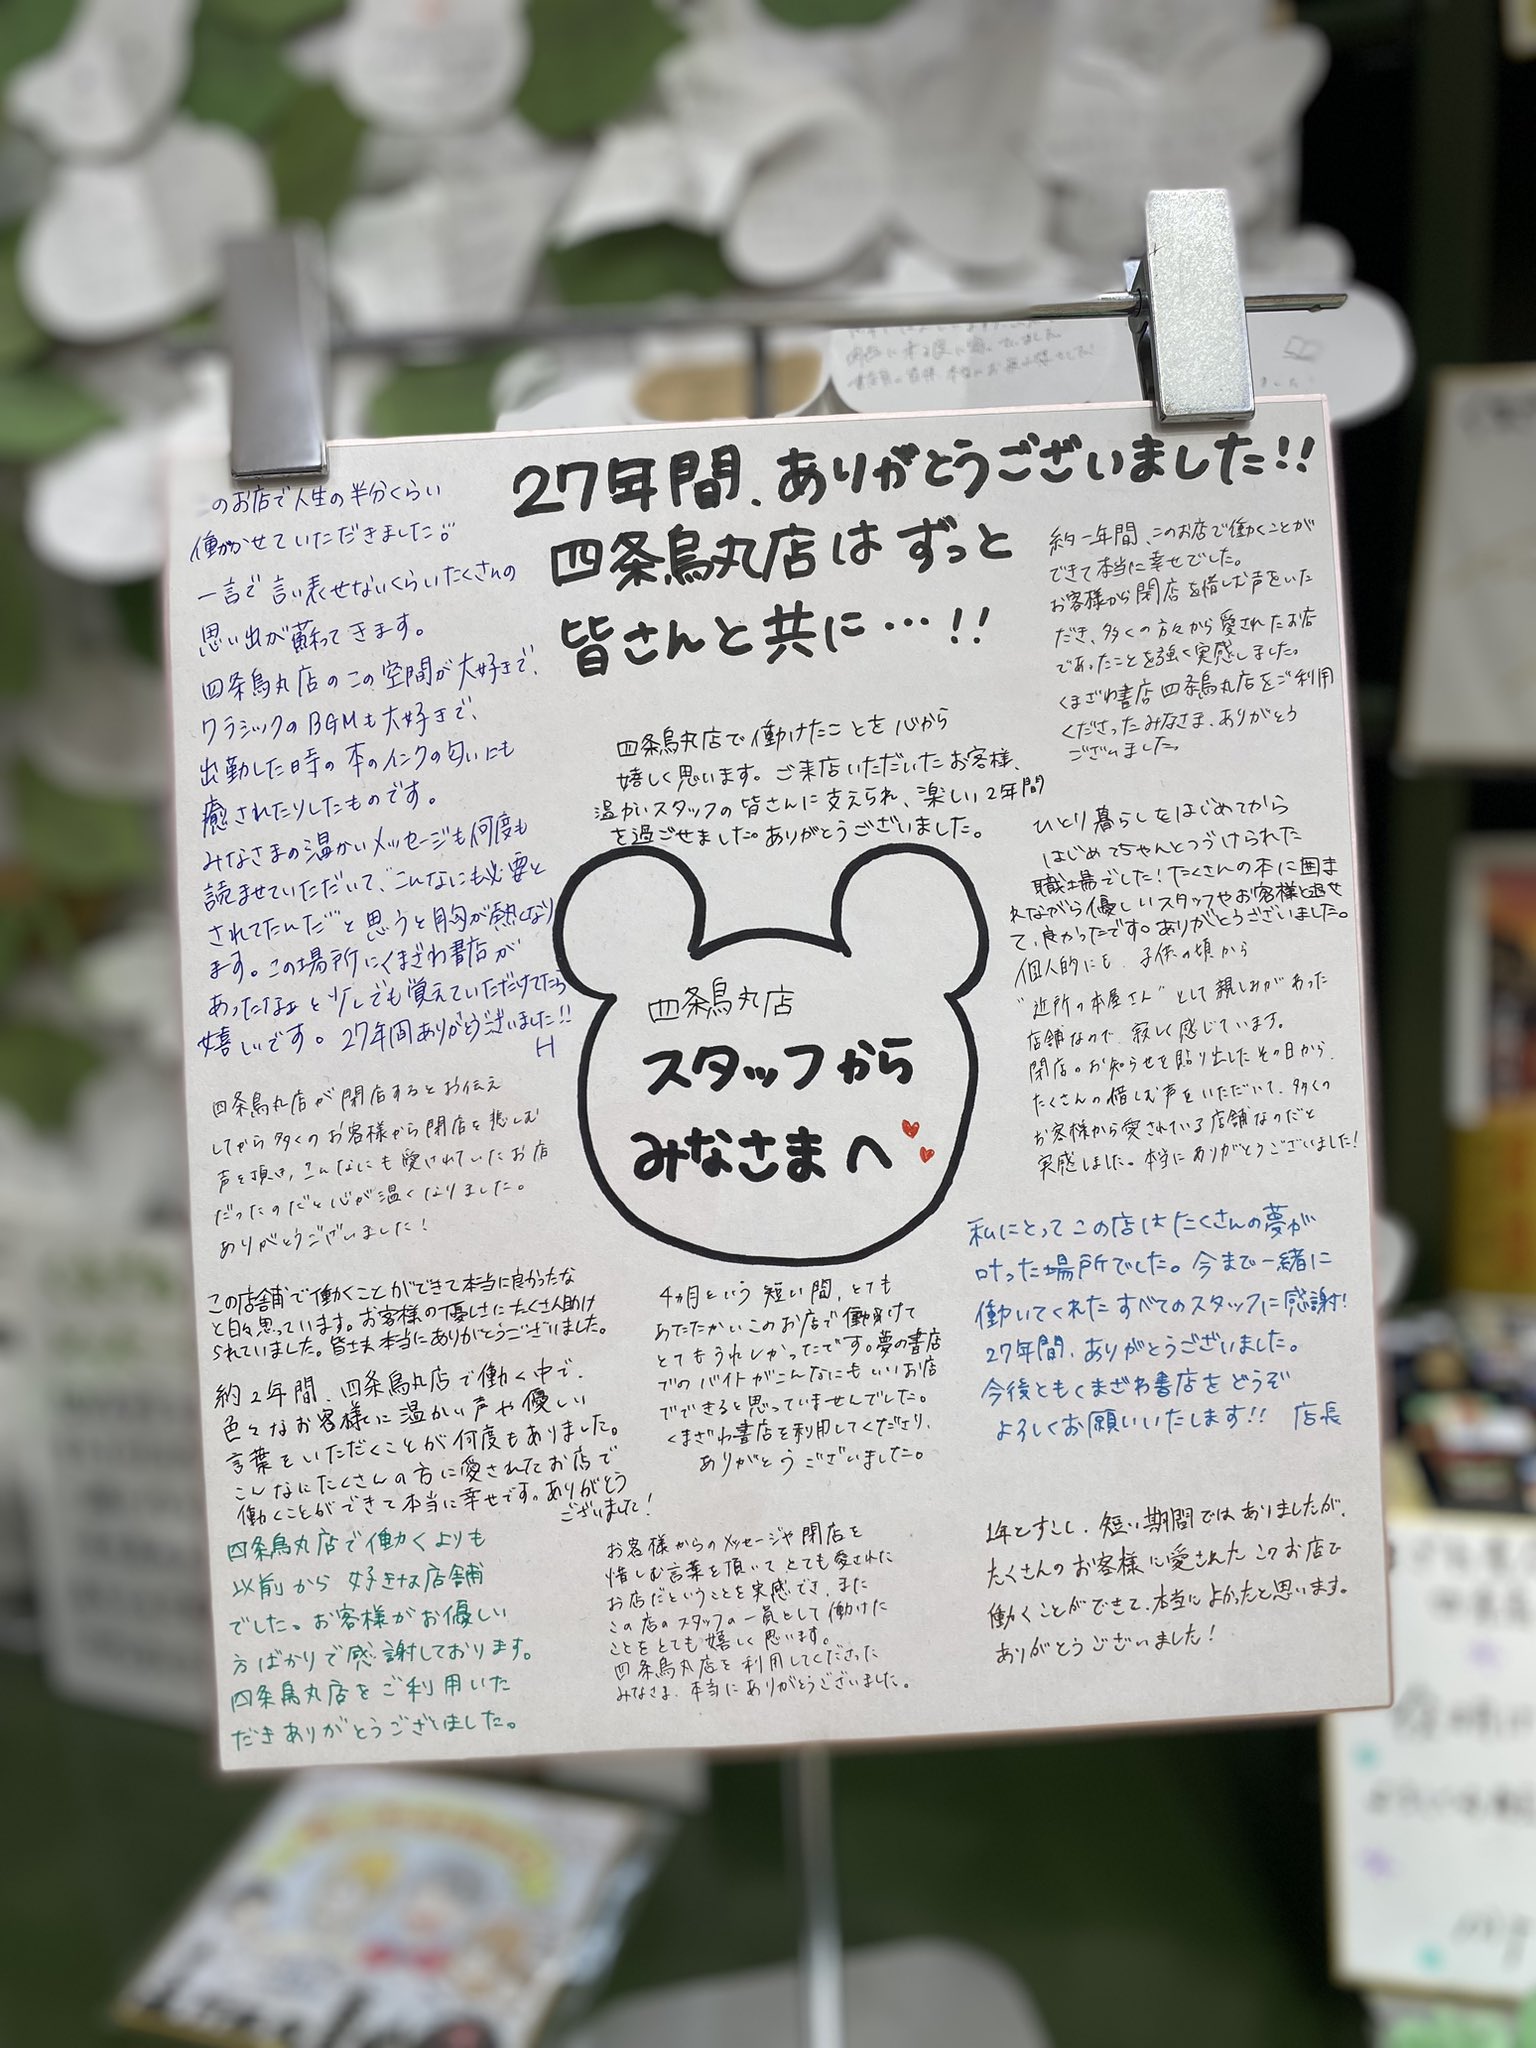 27年間、ありがとうございました!!
四条烏丸店はずっと
皆さんと共に…!!
のお店で人生の半分くらい
働かせていただきました。
一言で言い表せないくらいたくさんの
思い出が蘇ってきます。
四条烏丸店のこの空間が大好きで、
クラシックのBGMも大好きで、
出勤した時の本のインクの匂いにも
癒されたりしたものです。
みなさまの温かいメッセージも何度も
読ませていただいて、"こんなにも必要と
されてたんだ"と思うと胸が熱くなり
ます。この場所にくまざわ書店が
あったなぁと少しでも覚えていただけてたら
嬉しいです。27年間ありがとうございました!!
H
四条烏丸店が閉店するとお伝え
してから多くのお客様から閉店を悲しむ
声を頂き、こんなにも愛されていたお店
だったのだと心が温くなりました。
ありがとうございました!
この店舗で働くことができて本当に良かったな
と日々思っています。お客様の優しさにたくさん助け
られていました。皆さま本当にありがとうございました。
約2年間、四条烏丸店で働く中で、
色々なお客様に温かい声や優しい
言葉をいただくことが何度もありました。
こんなにたくさんの方に愛されたお店で
働くことができて本当に幸せです。ありがとう
ございました!
四条烏丸店で働くよりも
以前から好きな店舗
でした。お客様がお優しい
方ばかりで感謝しております。
四条烏丸店をご利用いた
だきありがとうございました。
四条烏丸店で働けたことを心から
嬉しく思います。ご来店いただいたお客様、
温かいスタッフの皆さんに支えられ、楽しい2年間
を過ごせました。ありがとうございました。
四条烏丸店
スタッフから
みなさまへ
4ヵ月という短い間、とても
あたたかいこのお店で働けて
とてもうれしかったです。夢の書店
でのバイトがこんなにもいいお店
でできると思っていませんでした。
くまざわ書店を利用してくださり、
ありがとうございました。
お客様からのメッセージや閉店を
惜しむ言葉を頂いてとても愛された
お店だということを実感でき、また
この店のスタッフの一員として働けた
ことをとても嬉しく思います。
四条烏丸店を利用してくださった
みなさま、本当にありがとうございました。
約一年間、このお店で働くことが
できて本当に幸せでした。
お客様から閉店を惜しむ声をいた
だき、多くの方々から愛されたお店
であったことを強く実感しました。
くまざわ書店四条烏丸店をご利用
くださったみなさま、ありがとう
ございました。
ひとり暮らしをはじめてから
はじめてちゃんとつづけられた
職場でした!たくさんの本に囲ま
れながら優しいスタッフやお客様と過せ
て、良かったです。ありがとうございました。
個人的にも、子供の頃から
"近所の本屋さん"として親しみがあった
店舗なので、寂しく感じています。
閉店のお知らせを貼り出したその日から、
たくさんの惜しむ声をいただいて、多くの
お客様から愛されている店舗なのだと
実感しました。本当にありがとうございました!
私にとってこの店はたくさんの夢が
叶った場所でした。今まで一緒に
働いてくれたすべてのスタッフに感謝!
27年間、ありがとうございました。
今後ともくまざわ書店をどうぞ
よろしくお願いいたします!! 店長
1年とすこし、短い期間ではありましたが、
たくさんのお客様に愛されたこのお店で
働くことができて、本当によかったと思います。
ありがとうございました!